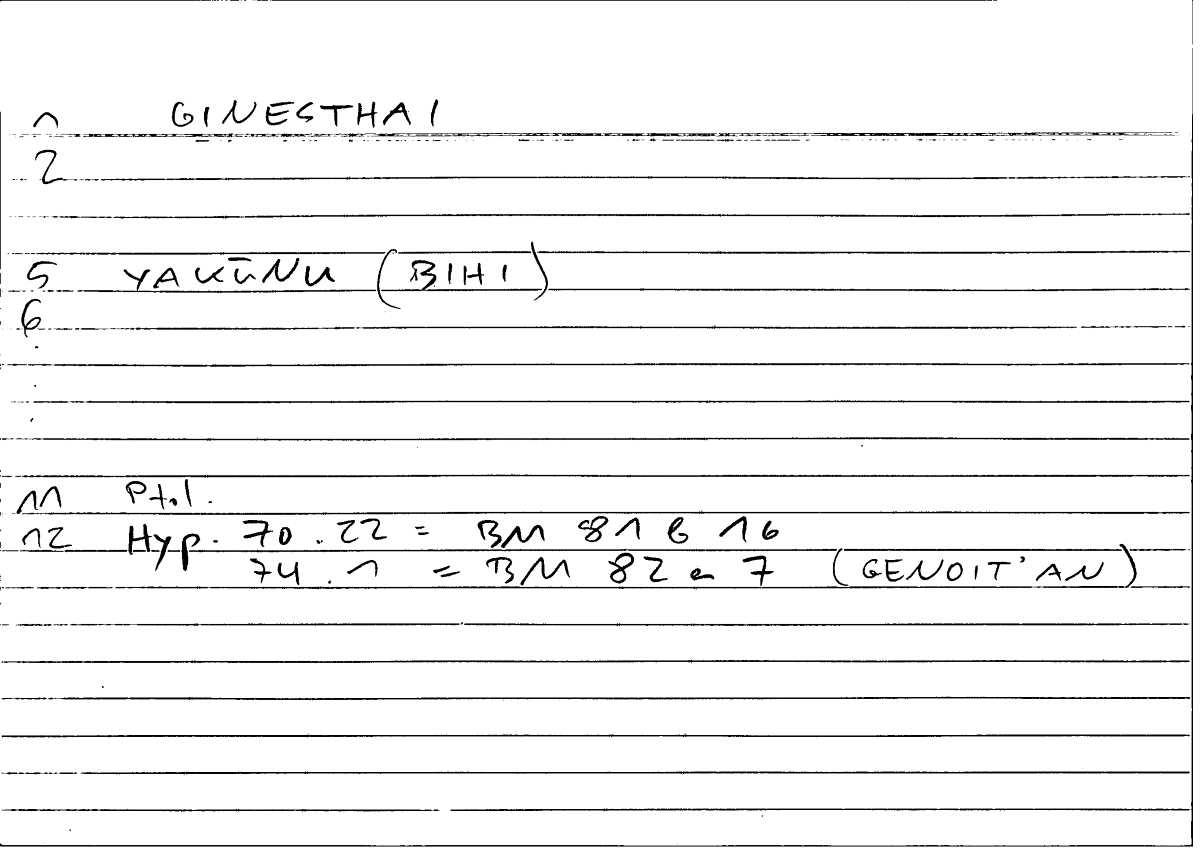 1 GINESTHAI
2
5 YAKŪNU (BIHI)
6
.
.
.
11 Ptol.
12 Hyp. 70.22 = BM 81 b 16
74.1 = BM 82 a 7 (GENOIT'AN)